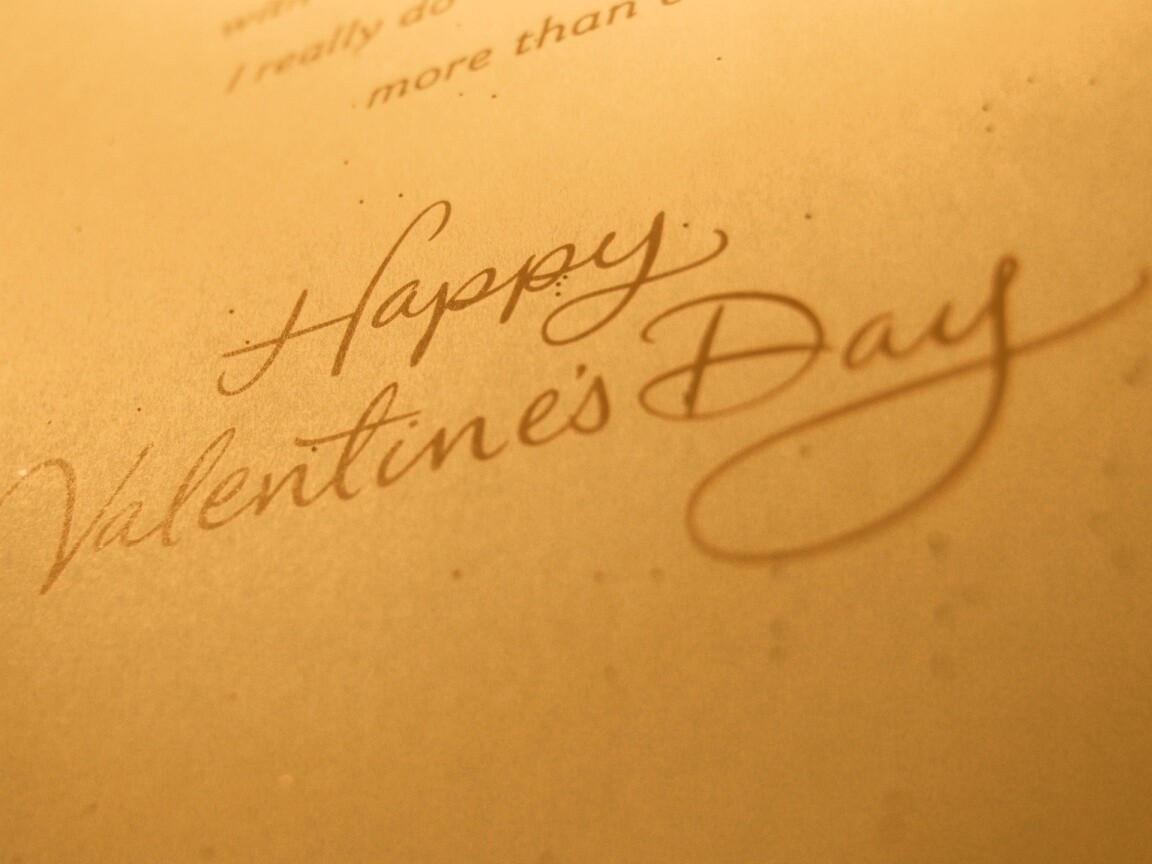 with
I really do
more than
Happy
Valentine's Day